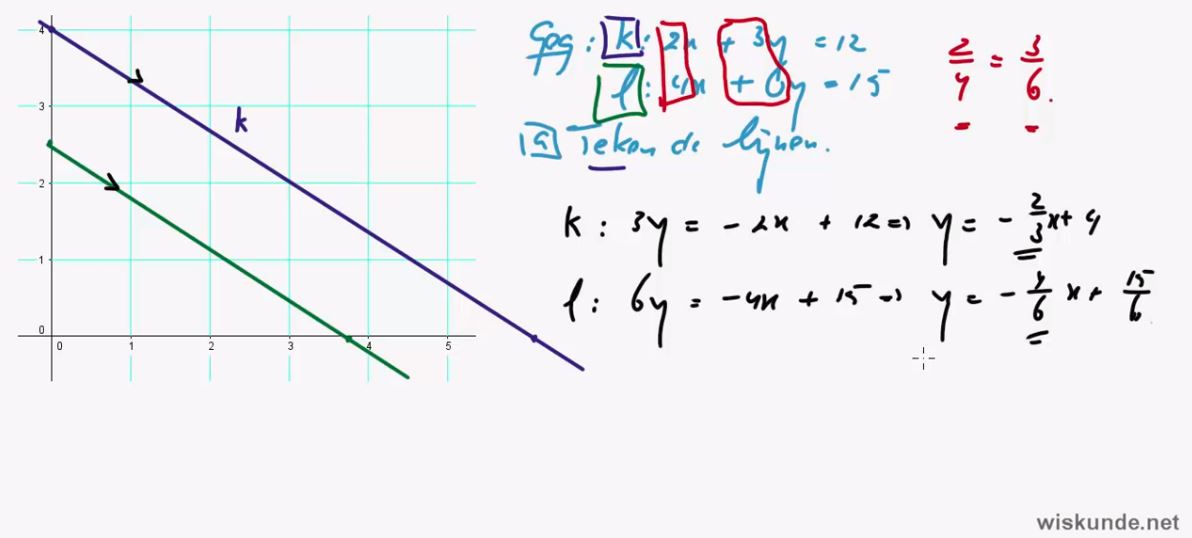 Geg: k: 2x + 3y = 12
l: 4x + 6y = 15
2/4 = 3/6.
a Teken de lijnen.
k: 3y = -2x + 12 => y = -2/3x + 4
l: 6y = -4x + 15 => y = -4/6 x + 15/6
4
3
2
1
0
0 1 2 3 4 5
k
wiskunde.net